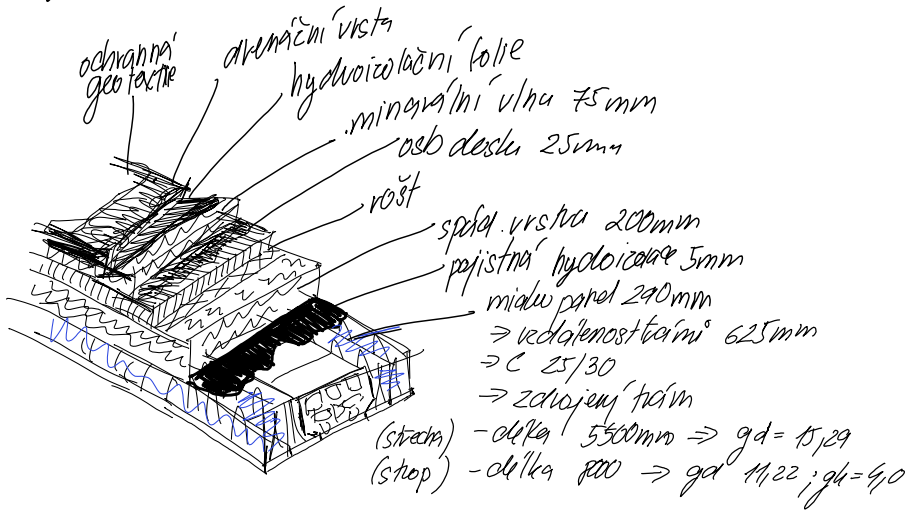 ochranná
geotextilie
drenážní vrsta
hydroizolační folie
minerální vlna 75mm
osb desku 25mm
rošt
spád. vrstva 200mm
pojistná hydroizolace 5mm
miako panel 290mm
→ vzdálenost trámů 625mm
→ C 25/30
→ zdvojený trám
(střecha) - délka 5500mm ⇒ gd = 15,29
(strop) - délka 8000 ⇒ gd 11,22 ; gk = 4,0